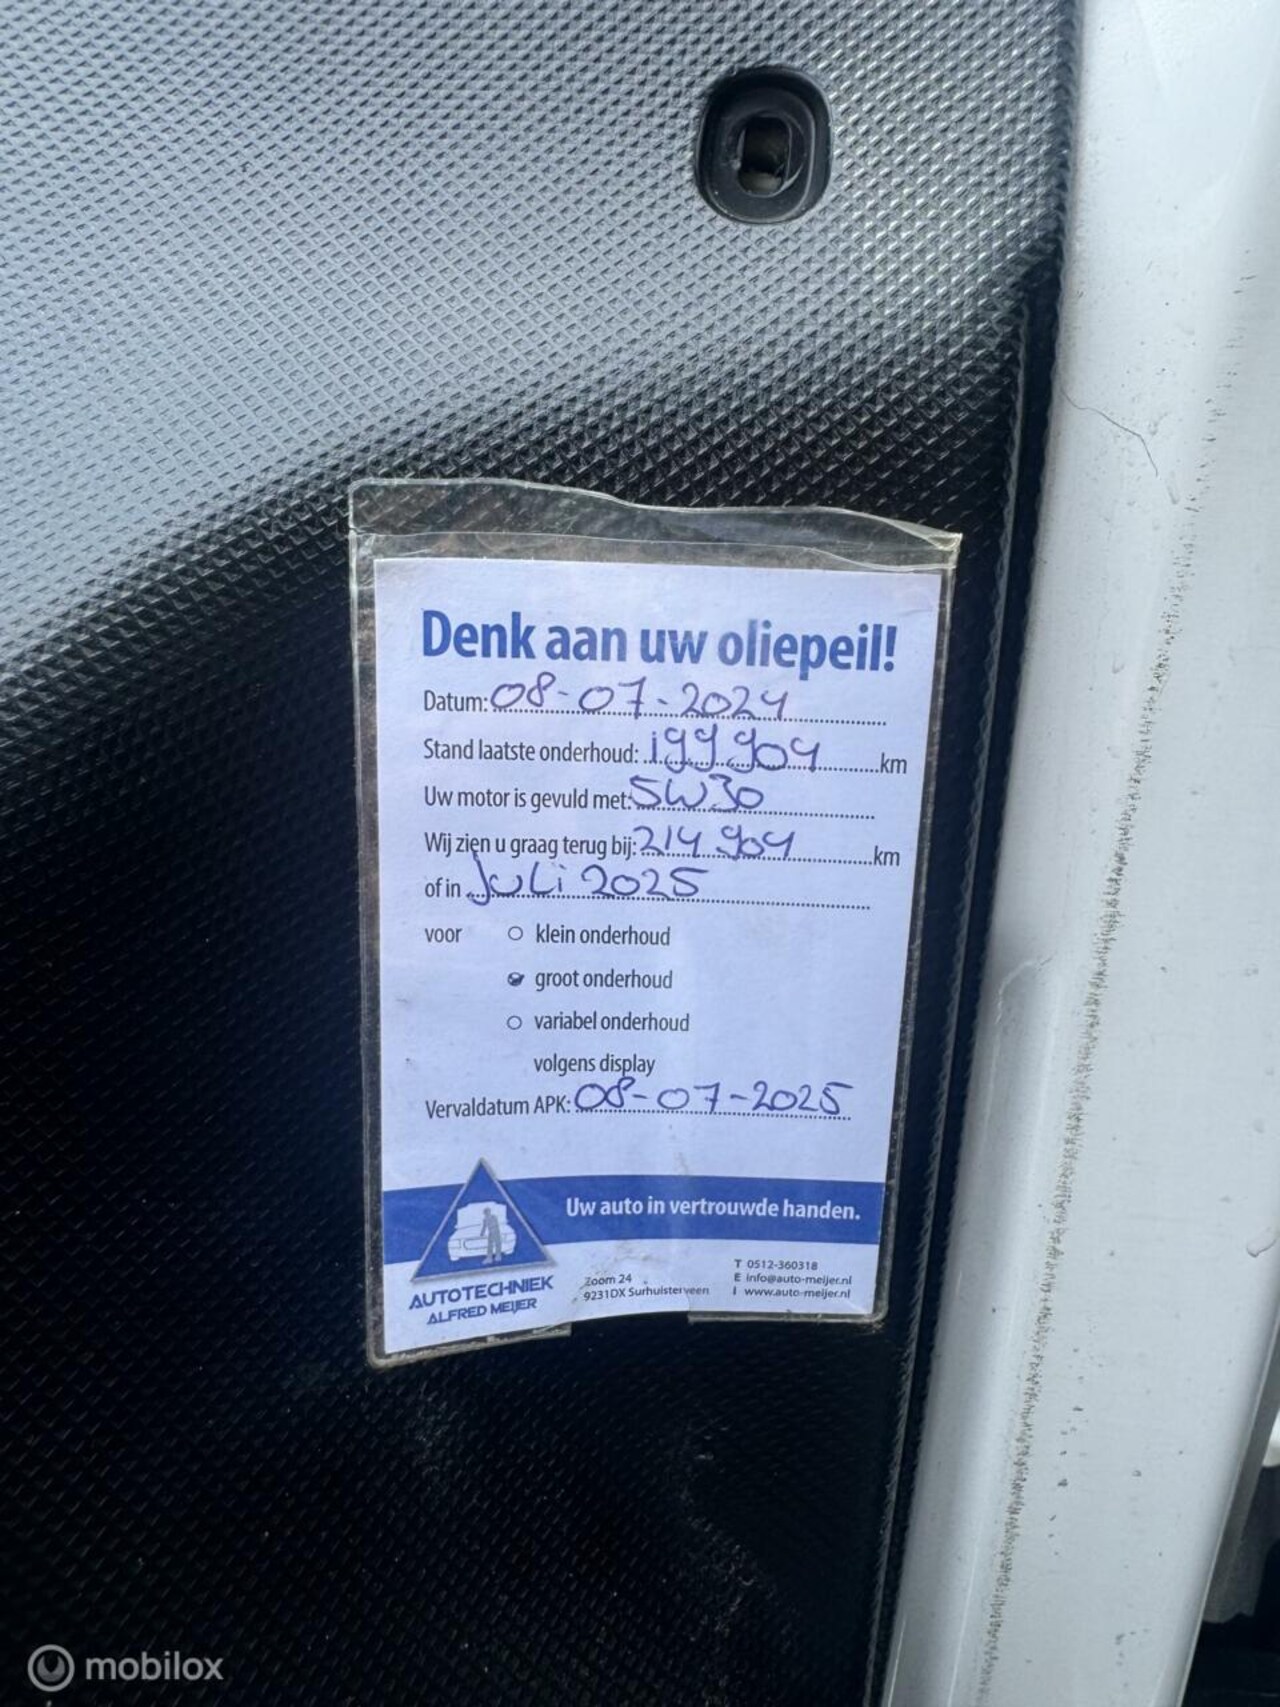 Denk aan uw oliepeil!
Datum: 08-07-2024
Stand laatste onderhoud: 199904 km
Uw motor is gevuld met: 5W30
Wij zien u graag terug bij: 214904 km
of in Juli 2025
voor klein onderhoud
groot onderhoud
variabel onderhoud
volgens display
Vervaldatum APK: 08-07-2025
Uw auto in vertrouwde handen.
AUTOTECHNIEK
ALFRED MEIJER
Zoom 24
9231DX Surhuisterveen
T 0512-360318
E info@auto-meijer.nl
I www.auto-meijer.nl
mobilox